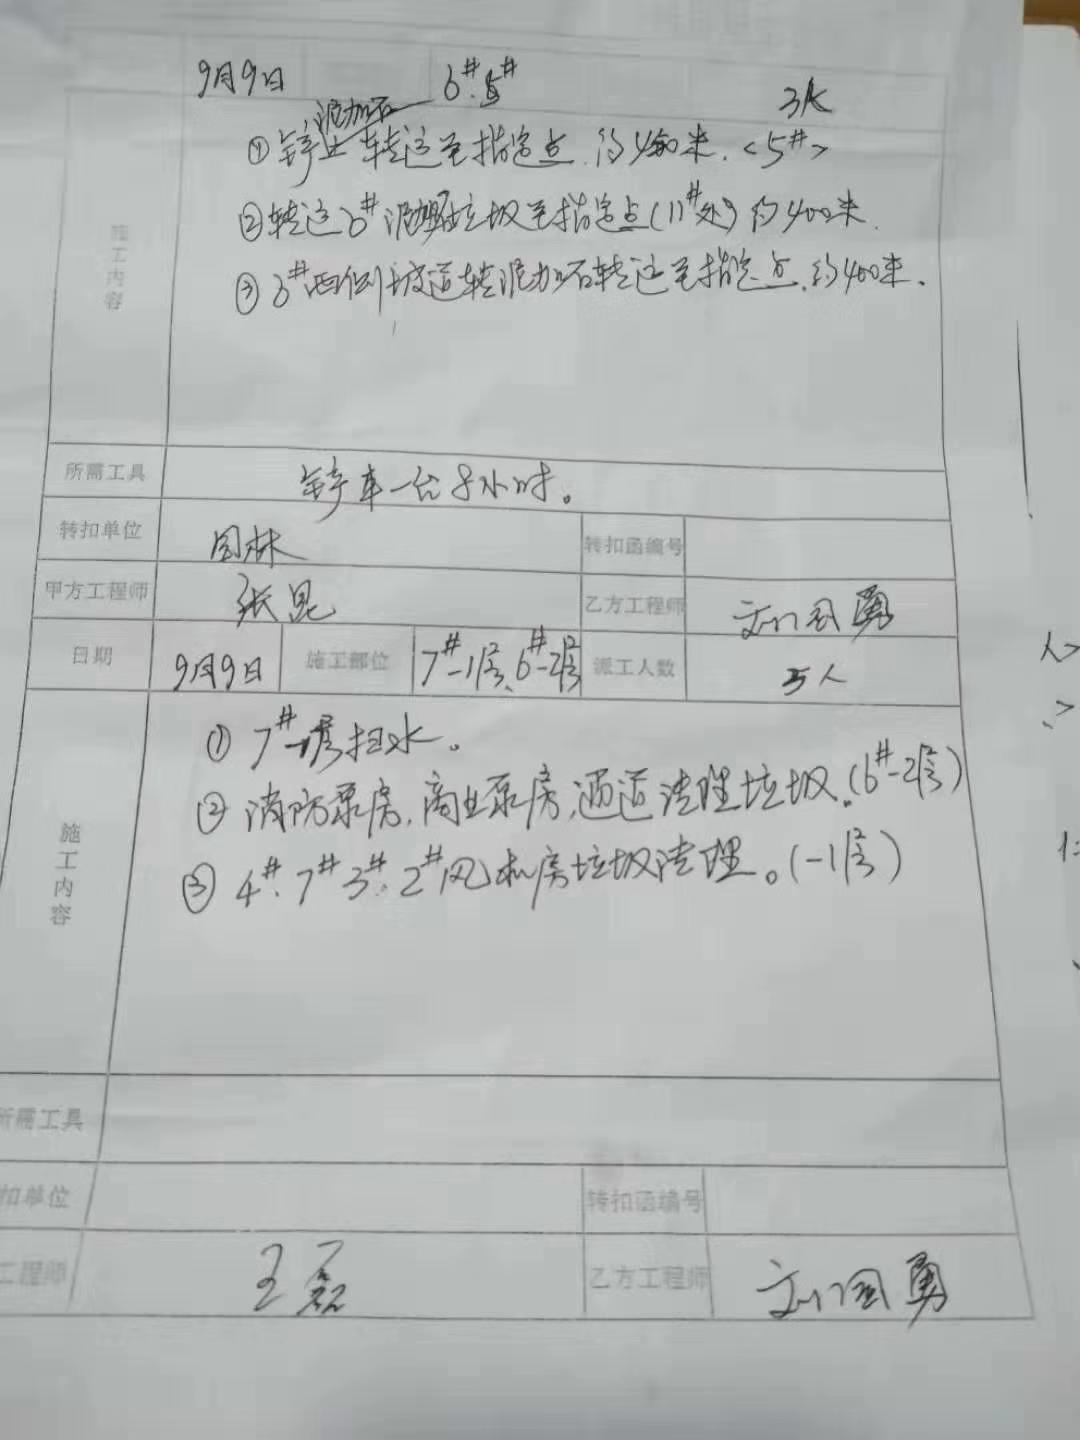 9月9日 6#.5# 3人
泥加石
①铲土转运至指定点.约400米.<5#>
②转运6#泥垃圾至指定点(11#处)约400米.
③6#两侧坡道转泥加石转运至指定点.约400米.
施工内容
所需工具 铲车一台8小时。
转扣单位 园林 转扣函编号
甲方工程师 张昆 乙方工程师 刘国勇
日期 9月9日 施工部位 7#-1层、6#-2层 派工人数 5人
①7#-1层扫水。
②消防泵房,商业泵房,通道清理垃圾.(6#-2层)
③4#.7#3#.2#风机房垃圾清理。(-1层)
施工内容
所需工具
扣单位 转扣函编号
工程师 王磊 乙方工程师 刘国勇